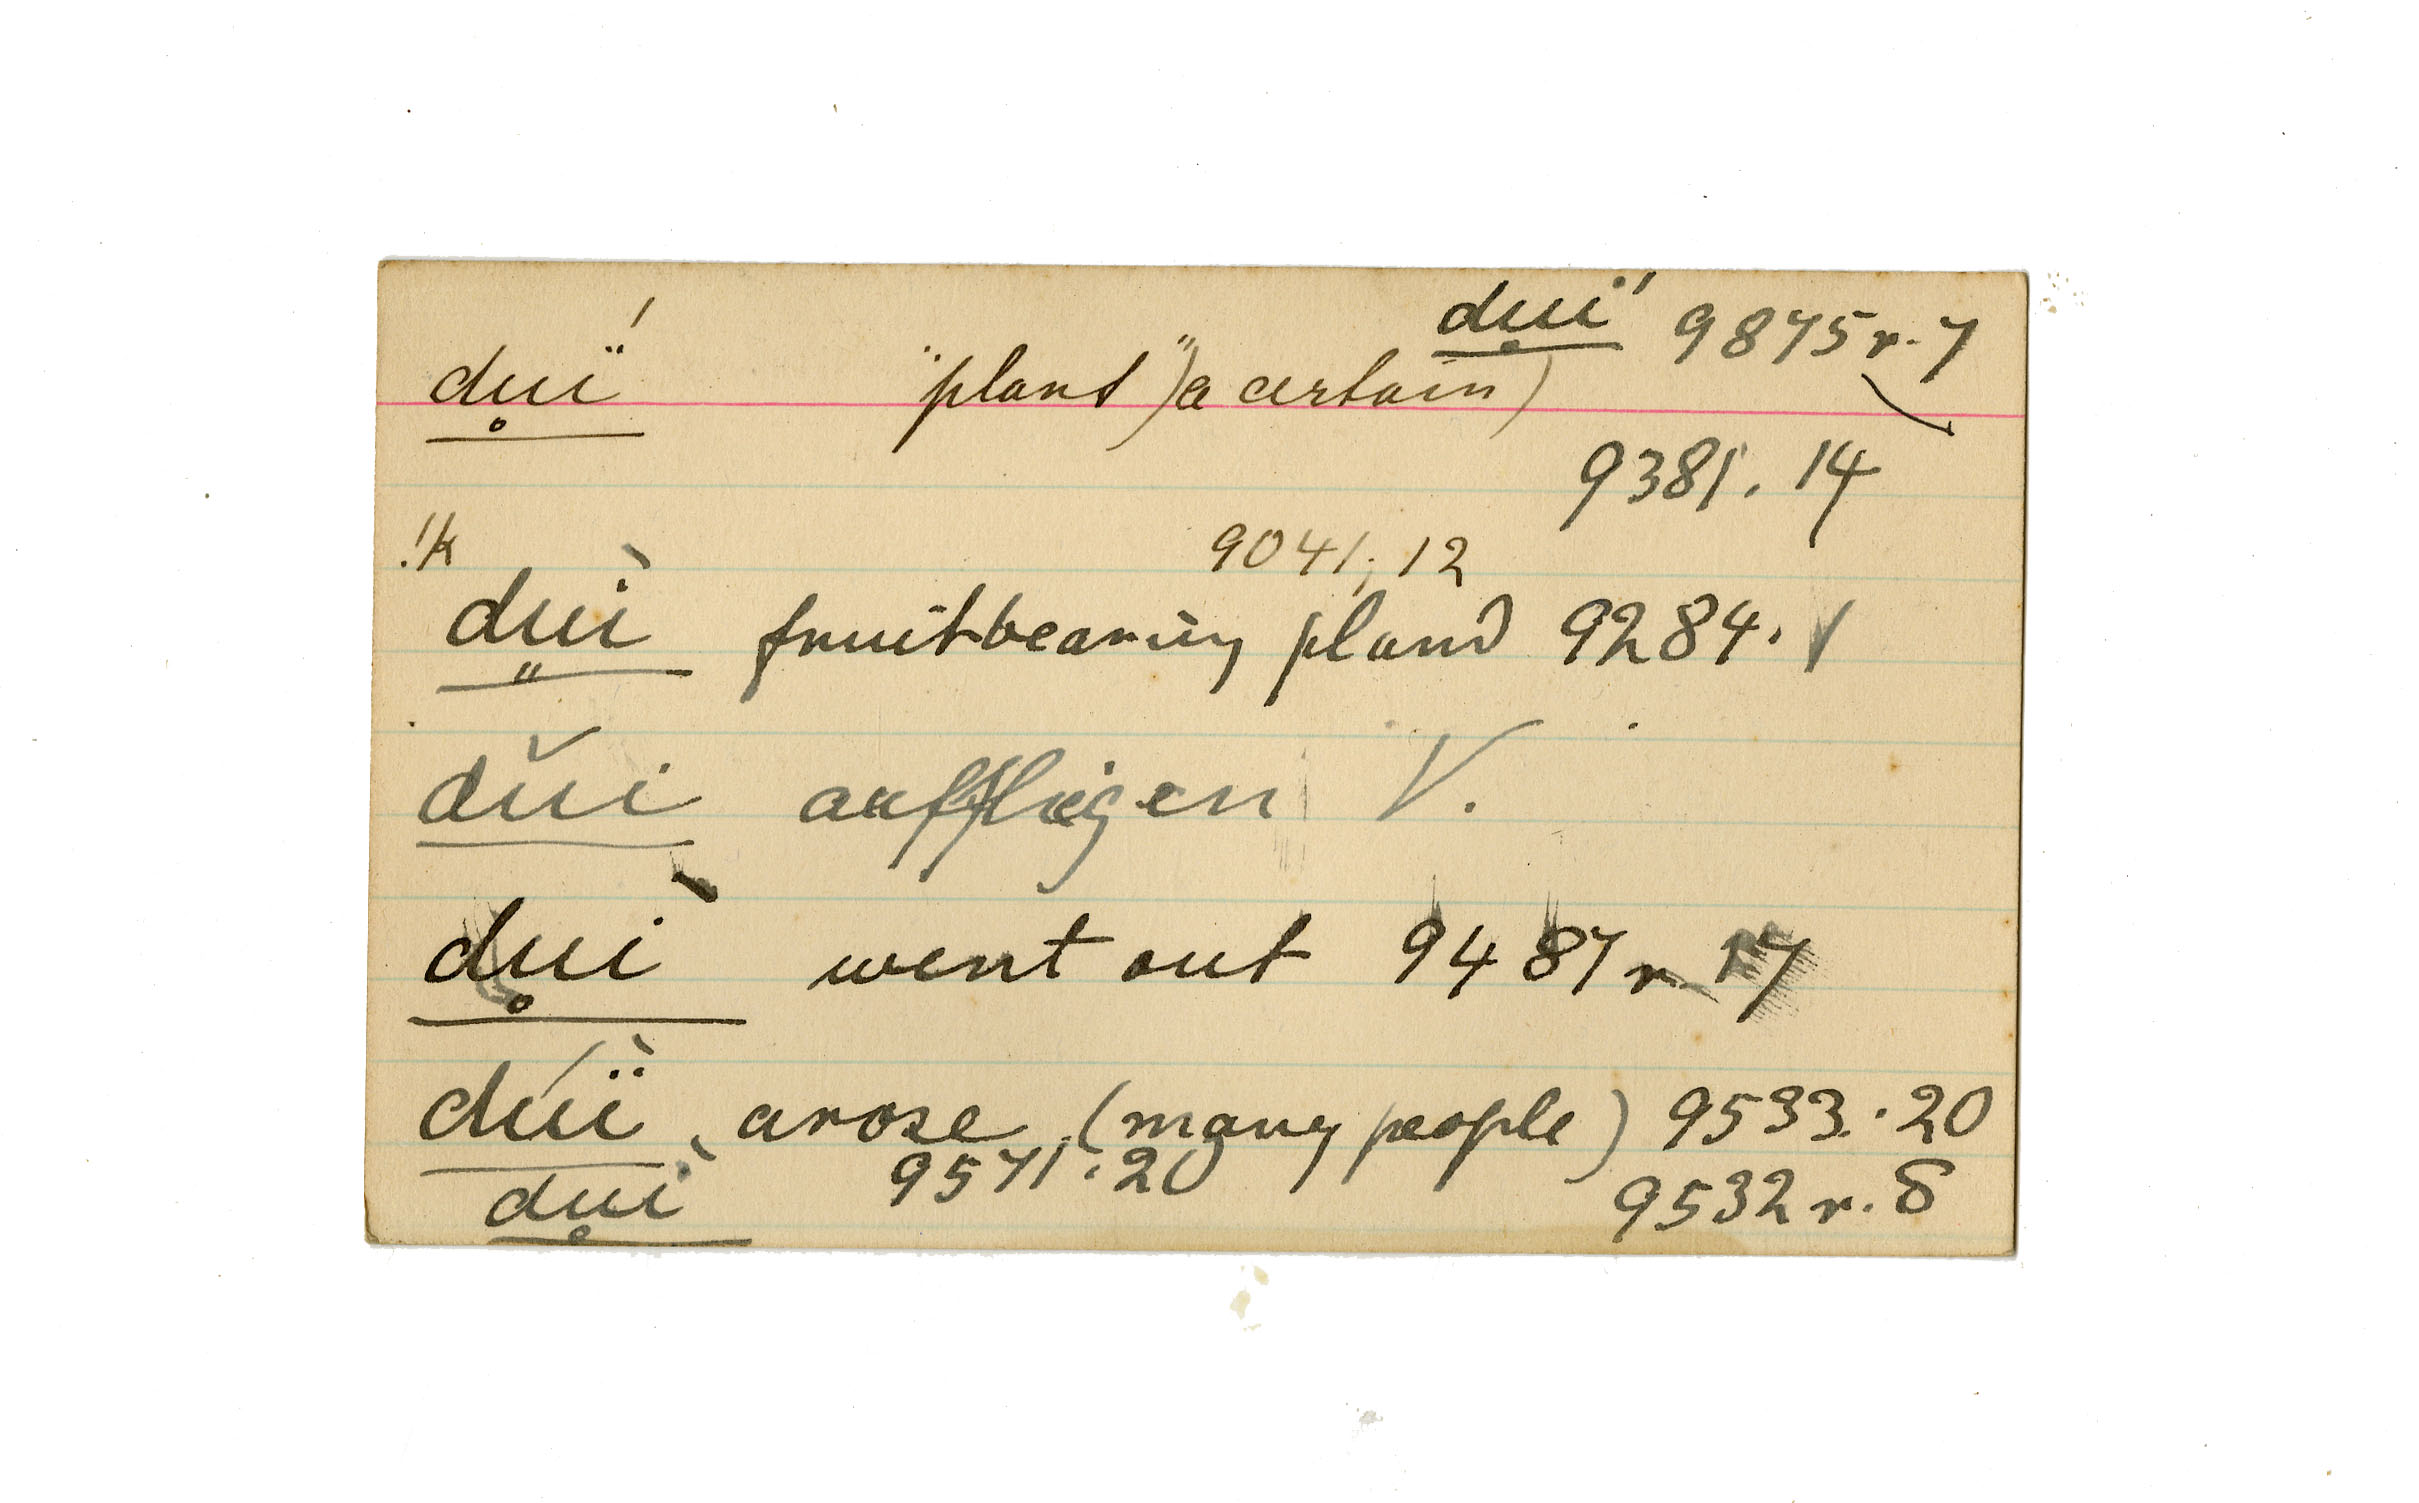 dụi̋ 9875 r. 7
dụḯ "plant") a certain)
9381. 14
!k 9041, 12
dṳì fruitbearing plant 9284. 1
dŭi auffliegen V.
dụì went out 9487 r. 17
dúï̀, arose (many people) 9533. 20
dụì 9571. 20 9532 r. 8